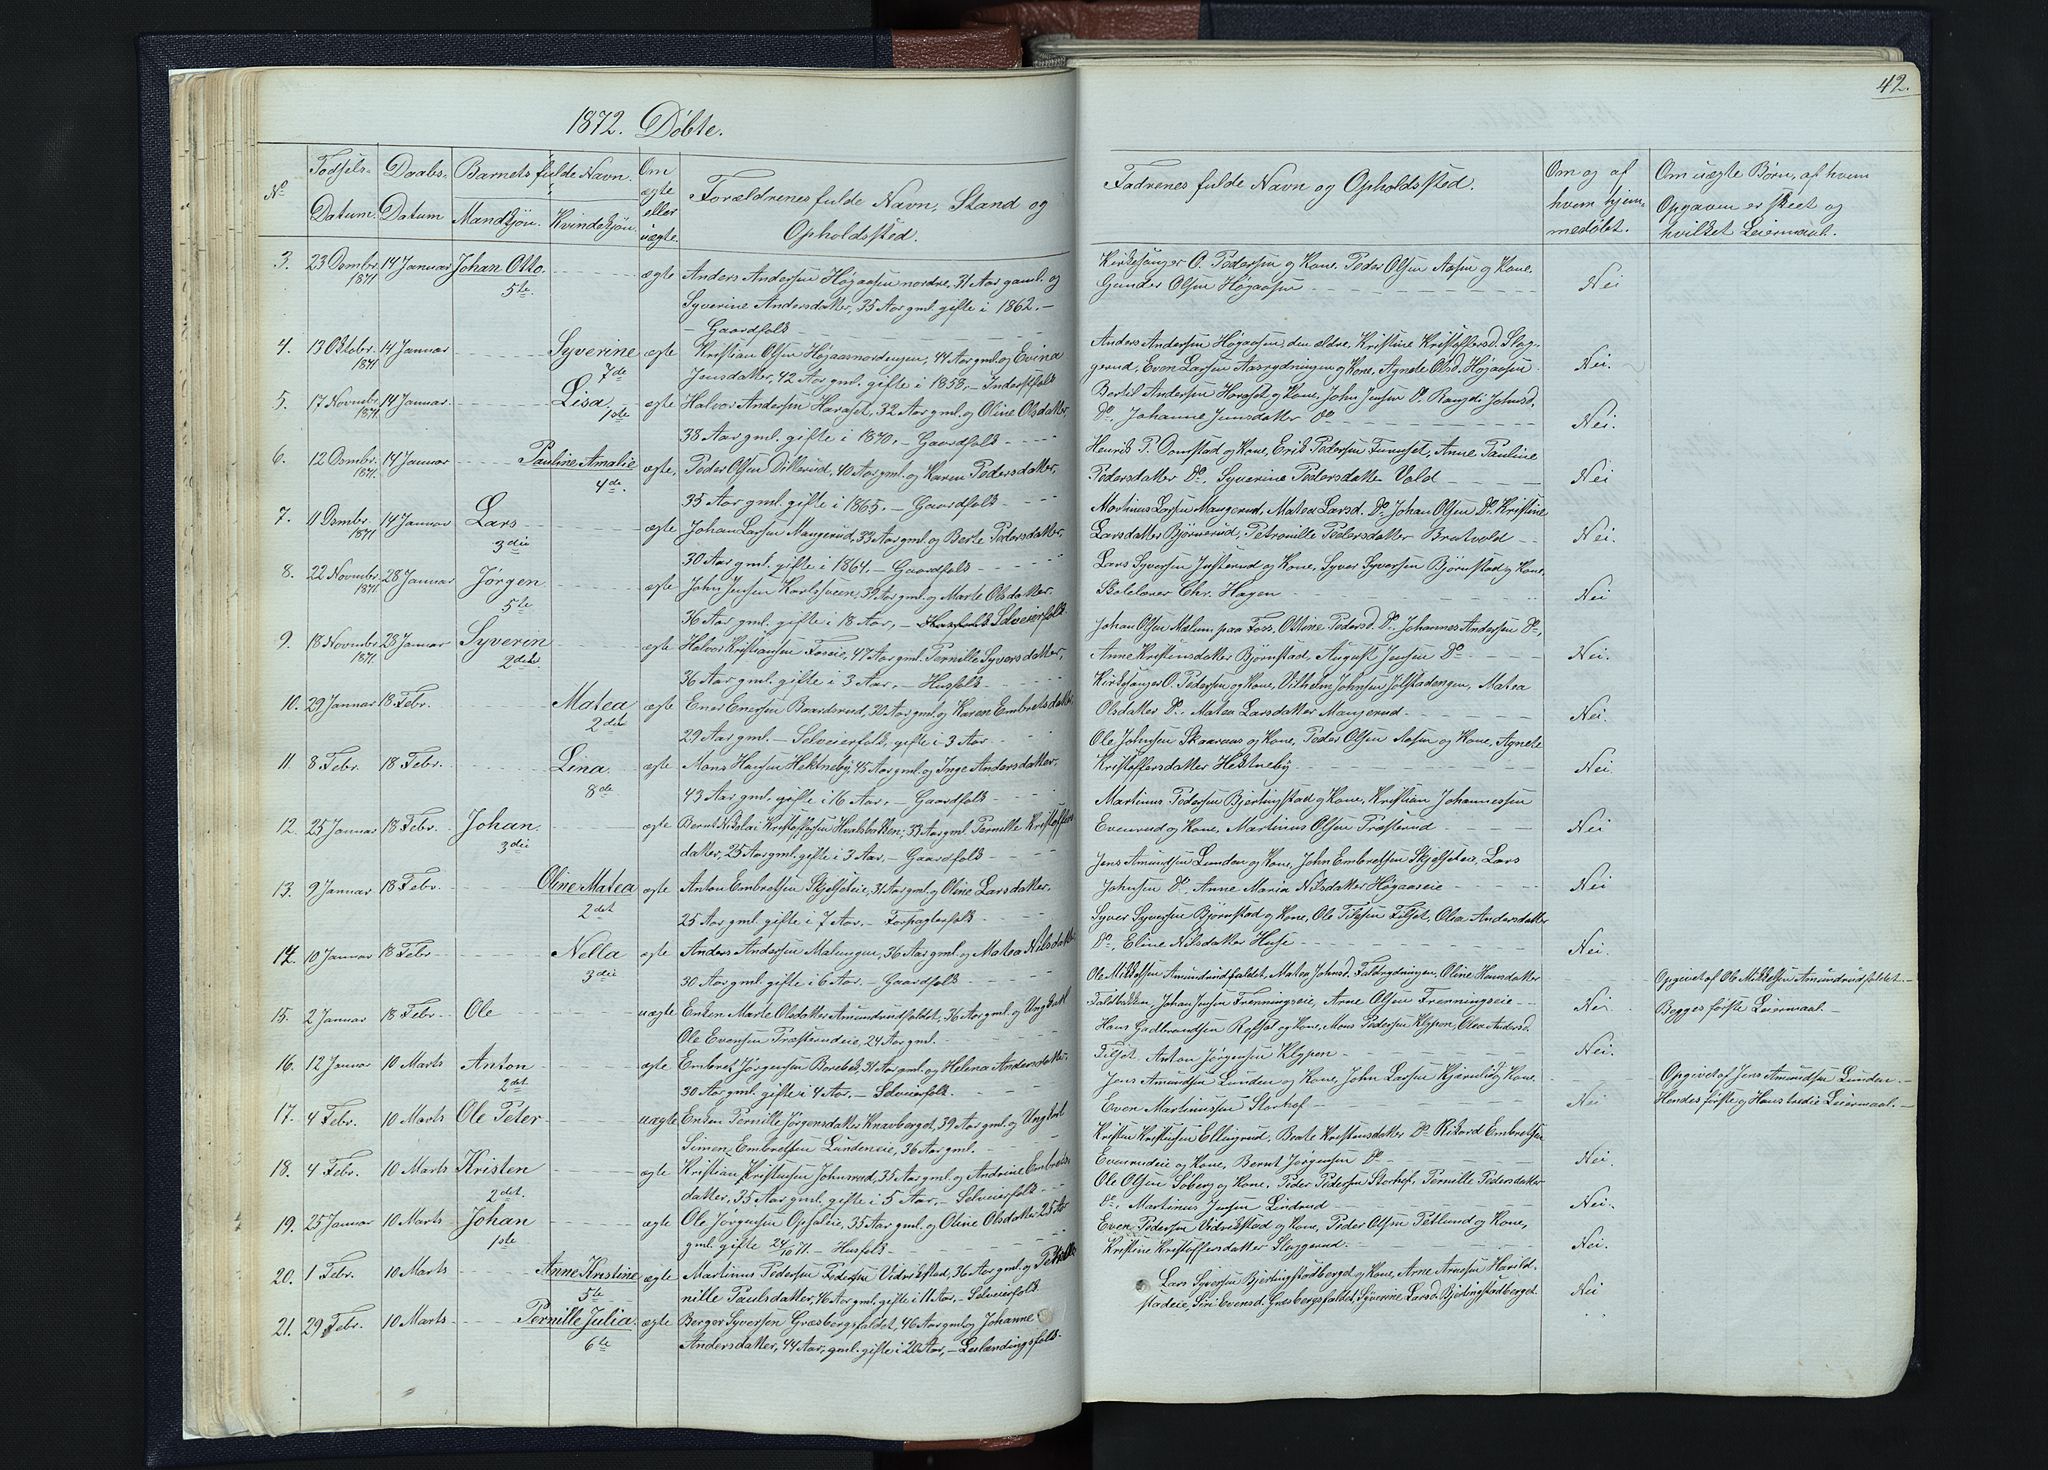 1872. Døbte.
No
Fødsels-Datum.
Daabs-Datum
Barnets fulde Navn.
Mandkjøn.
Kvindekjøn.
Om ægte eller uægte.
Forældrenes fulde Navn, Stand og
Opholdssted.
3. 23 Dsmbr. 1871 14 Januar Johan Otto. 5te. ægte Anders Andersen Høgaasen nordre, 31 Aar gaml. og
Syverine Andersdatter, 35 Aar gml. gifte i 1862. -
- Gaardfolk -
4. 13 Oktobr. 1871 14 Januar Syverine 7de ægte Kristian Olsen Høgaasnordengen, 44 Aar gml. og Evena
Jensdatter, 42 Aar gml. gifte i 1858. - Inderstfolk
5. 17 Novmbr. 1871 14 Januar. Lisa 1ste ægte Halvor Andersen Haraset, 32 Aar gml. og Oline Olsdatter
38 Aar gml. gifte i 1870. - Gaardfolk
6. 12 Dsmbr. 1871. 14 Januar Pauline Amalie 4de. ægte, Peder Olsen Dikkerud, 40 Aar gml. og Karen Pedersdatter,
35 Aar gml. gifte i 1865. - Gaardfolk
7. 11 Dsmbr. 1871 14 Januar Lars 3die ægte Johan Larsen Mangerud, 33 Aar gml. og Berte Pedersdatter,
30 Aar gml. gifte i 1864. - Gaardfolk
8. 22 Novmbr. 1871. 28 Januar Jørgen 5te ægte John Jensen Karlsveen, 39 Aar gml. og Marte Olsdatter
36 Aar gml. gifte i 18 Aar, - Husfolk Selveierfolk.
9. 18 Novmbr. 1871. 28 Januar Syverin 2det ægte Halvor Kristiansen Fosseie, 47 Aar gml. Pernille Syversdatter,
36 Aar gml. gifte i 3 Aar. - Husfolk
10. 29 Januar 18 Febr. Matea 2det ægte Ener Enersen Baardsrud, 30 Aar gml. og Karen Embretsdatter
29 Aar gml. - Selveierfolk, gifte i 3 Aar
11. 8 Febr. 18 Febr. Lina 8de ægte Mons Hansen Hektneby, 45 Aar gml. og Inge Andersdatter.
43 Aar gml. gifte i 16 Aar. - Gaardfolk
12. 25 Januar 18 Febr. Johan. 3die ægte Bernt Nikolai Kristoffersen Hvalsbakken, 33 Aar gml. Pernille Kristoffers
datter, 25 Aar gml. gifte i 3 Aar. - Gaardfolk
13. 9 Januar 18 Febr. Oline Matea 2det ægte Anton Embretsen Skjelfeteie, 31 Aar gml. og Oline Larsdatter,
25 Aar gml. gifte i 7 Aar. - Forpagterfolk
14. 10 Januar 18 Febr Nella 3die ægte Anders Andersen Malungen, 36 Aar gml. og Matea Nilsdatter
30 Aar gml. gifte i 6 Aar. - Gaardfolk
15. 2 Januar 18 Febr. Ole uægte Enken Marte Olsdatter Amundrudfaldet, 36 Aar gml. og Ungkarl
Ole Evensen Præsterudeie, 24 Aar gml.
16. 12 Januar 10 Marts Anton 2det ægte Embret Jørgensen Borebek, 31 Aar gml. og Helena Andersdatter.
30 Aar gml. gifte i 4 Aar. - Selveierfolk.
17. 4 Febr. 10 Marts Ole Peter uægte Enken Pernille Jørgensdatter Knavberget, 39 Aar gml. og Ungkarl
Simen Embretsen Lundeneie, 36 Aar gml. -
18. 4 Febr. 10 Marts Kristen 2det. ægte Kristian Kristensen Johnsrud, 35 Aar gml. og Andrine Embrets
datter, 35 Aar gml. gifte i 5 Aar. - Selveierfolk
19. 25 Januar 10 Marts Johan 1ste ægte Ole Jørgensen Opsaleie, 35 Aar gml. og Oline Olsdatter 25 Aar
gml. gifte 24/10 71. - Husfolk
20. 1 Febr. 10 Marts Anne Kristine 5te ægte Martinus Pedersen Vidrikstad, 36 Aar gml. og
nille Paulsdatter, 46 Aar gml. gifte i 11 Aar. - Selveierfolk.
21. 29 Febr. 10 Marts Pernille Julia. 6te ægte Berger Syversen Græsbergsfaldet, 46 Aar gml. og Johanne
Andersdatter, 44 Aar, gml. gifte i 20 Aar, - Leilændingsfolk.
42.
Fadrenes fulde Navn og Opholdssted.
Om og af hvem hjemmedøbt.
Om uægte Børn, af hvem
Opgaven er skeet og
hvilket Leiermaal.
Kirkesanger O. Pedersen og Kone, Peder Olsen Aasen og Kone.
Gunder Olsen Høgaasen Nei
Anders Andersen Høgaasen, den ældre, Kristine Kristoffersd. Slag-
gerud, Even Larsen Aasrydningen og Kone, Agnete Olsd. Høgaasen Nei.
Bertil Andersen Haraset og Kone, John Jensen Do Rangdi Johnsd.
Do, Johanne Jensdatter Do Nei.
Henrik P. Domstad og Kone, Erik Pedersen Furuset, Anne Pauline
Pedersdatter Do, Syverine Pedersdatter Vold Nei
Martinus Larsen Mangerud, Matea Larsd. Do, Johan Olsen Do, Kristine
Larsdatter Bjørnerud, Petronille Pedersdatter Bratvold Nei.
Lars Syversen Justerud og Kone, Syver Syversen Bjørnstad og Kone,
Skolelærer Chr. Hagen Nei
Johan Olsen Mælum paa Foss, Oline Pedersd. Do, Johannes Andersen Do,
Anne Kristensdatter Bjørnstad, August Jensen Do Nei.
Kirkesanger O. Pedersen og Kone, Vilhelm Johnsen Jolstadengen, Matea
Olsdatter Do, Matea Larsdatter Mangerud Nei.
Ole Johnsen Skaaraas og Kone, Peder Olsen Aasen og Kone, Agnete
Kristoffersdatter Hektneby Nei.
Martinus Pedersen Bjertingstad og Kone, Kristian Johannessen
Evenrud og Kone, Martinus Olsen Præsterud Nei
Jens Amundsen Lunden og Kone, John Embretsen Skjelfeteie, Lars
Johnsen Do, Anne Maria Nilsdatter Høgaaseie Nei
Syver Syversen Bjørnstad og Kone, Ole Tilsen Filset, Olea Andersdatter
Do, Eline Nilsdatter Huse Nei.
Ole Mikkelsen Amundrudfaldet, Matea Johnsd. Faldrydningen, Oline Hansdatter
Faldbakken, Johan Jensen Frenningseie, Anne Olsen Frenningseie Nei
Opgivet af Ole Mikkelsen Amundrudfaldet.
Begges første Leiermaal. -
Hans Gudbrandsen Rofset og Kone, Mons Pedersen Klypen, Olea Andersd.
Filset, Anton Jørgensen Klypen Nei.
Jens Amundsen Lunden og Kone, John Larsen Kjærnlid og Kone,
Even Martinussen Storhof Nei
Opgivet af Jens Amundsen Lunden. -
Hendes første og Hans tredie Leiermaal. -
Kristen Kristensen Ellingrud, Beate Kristensdatter Do Rikard Embretsen
Evenrudeie og Kone, Bernt Jørgensen Do Nei.
Ole Olsen Søberg og Kone, Peder Pedersen Storhof, Pernille Pedersdatter
Do, Martinus Jensen Linderud Nei.
Even Pedersen Vidrikstad og Kone, Peder Olsen Petlund og Kone,
Kristine Kristoffersdatter Slaggerud. Nei.
Lars Syversen Bjertingstadberget og Kone, Arne Arnesen Harild-
stadeie, Siri Evensd. Græsbergsfaldet, Syverine Larsd. Bjertingstadberget. Nei